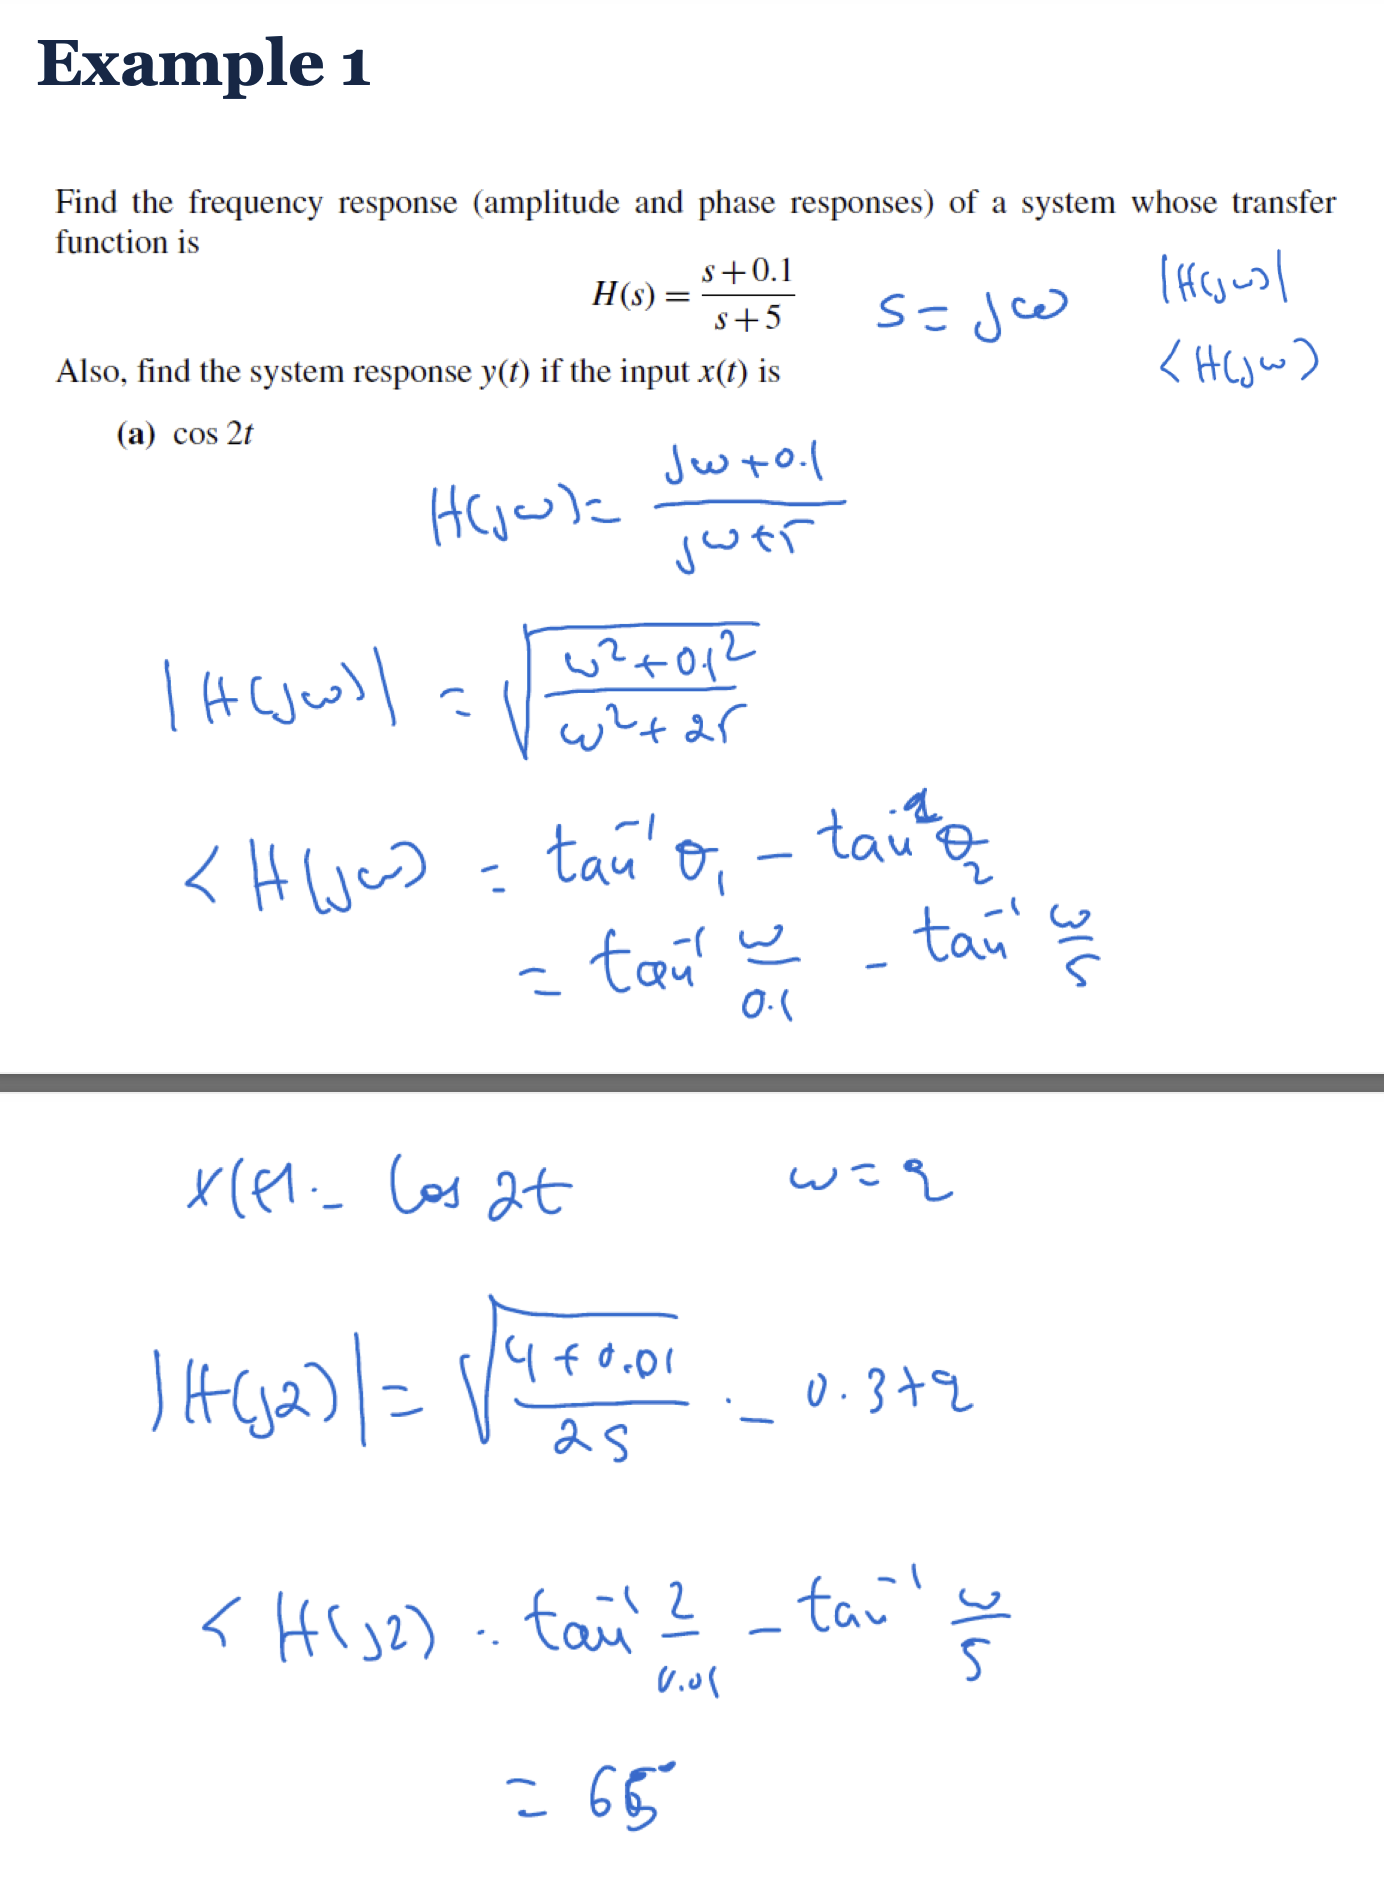 Example 1
Find the frequency response (amplitude and phase responses) of a system whose transfer
function is
H(s) = \frac{s+0.1}{s+5}
s = jω
|H(jω)|
<H(jω)
Also, find the system response y(t) if the input x(t) is
(a) cos 2t
H(jω) = \frac{jω+0.1}{jω+5}
|H(jω)| = \sqrt{\frac{ω^2+0.1^2}{ω^2+25}}
<H(jω) = tan^{-1} θ_1 - tan^{-1} θ_2
= tan^{-1} \frac{ω}{0.1} - tan^{-1} \frac{ω}{5}
x(t) = Cos 2t
ω = 2
|H(j2)| = \sqrt{\frac{4+0.01}{25}} = 0.372
<H(j2) = tan^{-1} \frac{2}{0.01} - tan^{-1} \frac{ω}{5}
= 65°